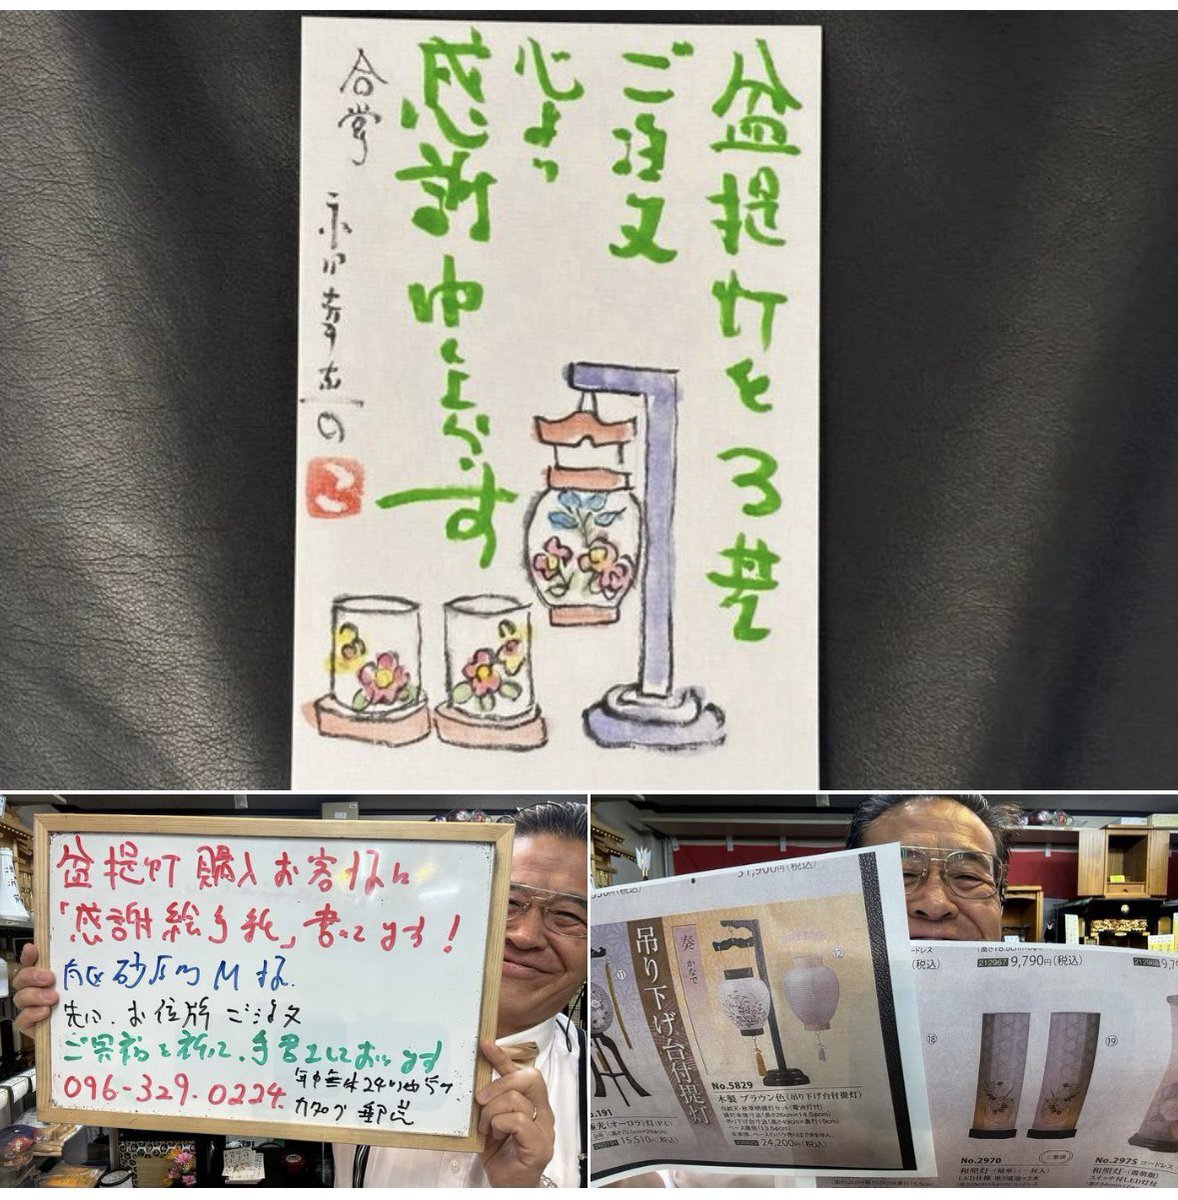 盆提灯を3基
ご注文
心より
感謝申し上げます
合掌
盆提灯購入お客様に
「感謝絵手紙」書いてます!
南区砂原町M様
先に、お位牌ご注文
ご冥福を祈って、手書きしております
096-329-0224
カタログ郵送
31,900円(税込)
吊り下げ台付提灯
奏 かなで
⑪
⑫
No.5829
木製 ブラウン色(吊り下げ台付提灯)
24,200円(税込)
No.191
15,510円(税込)
212967 9,790円(税込)
⑱
⑲
No.2970
和照灯
No.2975 コードレス
和照灯